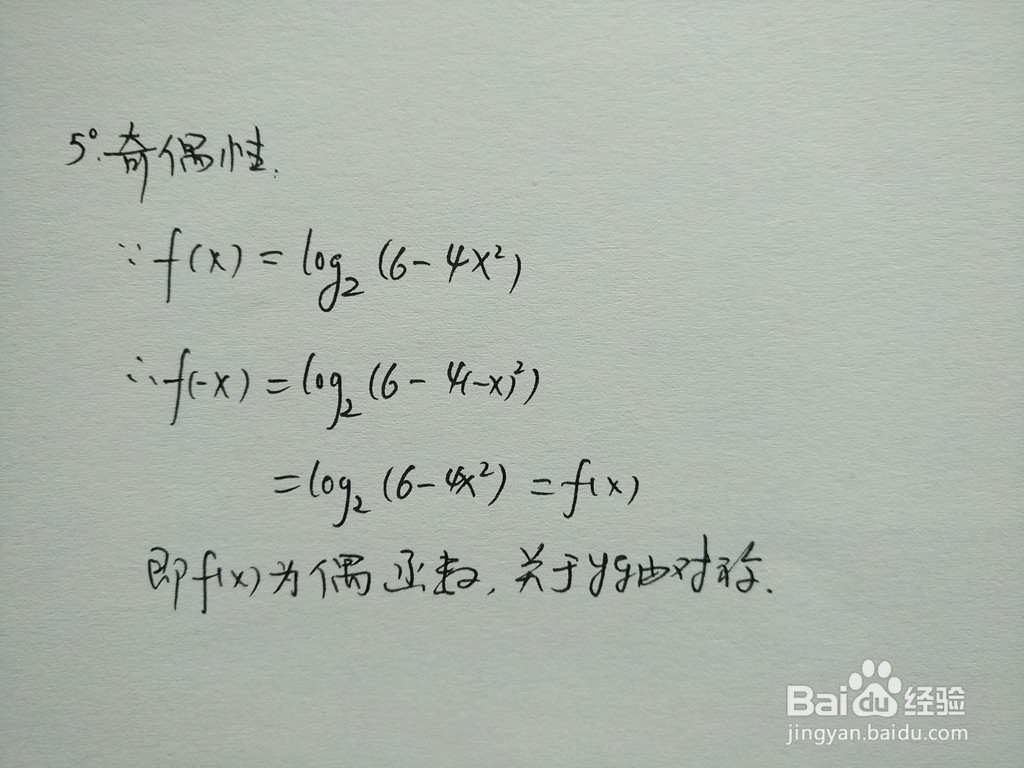 5°.奇偶性.
∵f(x)=log₂(6-4x²)
∴f(-x)=log₂(6-4(-x)²)
=log₂(6-4x²)=f(x)
即f(x)为偶函数,关于y轴对称.
Bai du 经验
jingyan.baidu.com